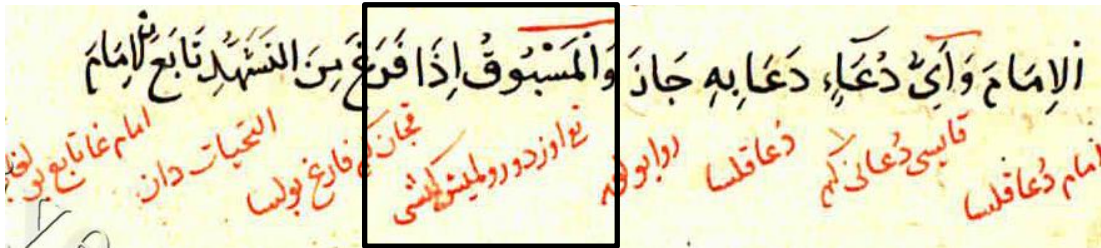 الإِمَامَ وَأَيَّ دُعَاءٍ دَعَا بِهِ جَازَ وَالْمَسْبُوقُ إِذَا فَرَغَ مِنَ التَّشَهُّدِ تَابَعَ الإِمَامَ
امام دعا قلسا قايسى دعانى كم دعا قلسا روا بولور اوزدورولميش كشى قچان كم فارغ بولسا التحيات دان امام غا تابع